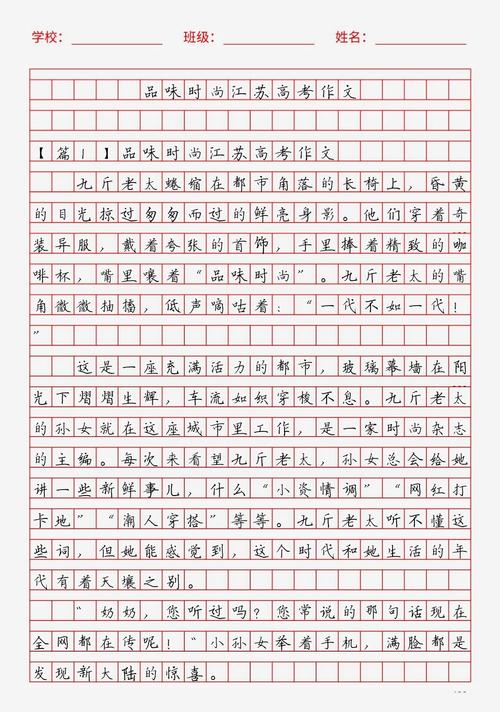 学校： 班级： 姓名：
品味时尚江苏高考作文
【篇1】品味时尚江苏高考作文
九斤老太蜷缩在都市角落的长椅上，昏黄
的目光掠过匆匆而过的鲜亮身影。他们穿着奇
装异服，戴着夸张的首饰，手里捧着精致的咖
啡杯，嘴里嚷着“品味时尚”。九斤老太的嘴
角微微抽搐，低声嘀咕着：“一代不如一代！
”
这是一座充满活力的都市，玻璃幕墙在阳
光下熠熠生辉，车流如织穿梭不息。九斤老太
的孙女就在这座城市里工作，是一家时尚杂志
的主编。每次来看望九斤老太，孙女总会给她
讲一些新鲜事儿，什么“小资情调”“网红打
卡地”“潮人穿搭”等等。九斤老太听不懂这
些词，但她能感觉到，这个时代和她生活的年
代有着天壤之别。
“奶奶，您听过吗？您常说的那句话现在
全网都在传呢！“小孙女举着手机，满脸都是
发现新大陆的惊喜。